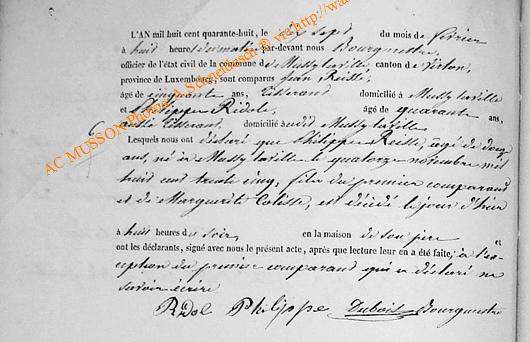 L'AN mil huit cent quarante-huit, le dix sept du mois de février
à huit heures du matin par-devant nous Bourgmestre,
officier de l'état civil de la commune de Mussy la ville canton de Virton,
province de Luxembourg; sont comparus Jean
âgé de cinquante ans, tisserand domicilié à Mussy la ville
et Philippe Ridole, âgé de quarante ans,
tisserand, domicilié audit Mussy la ville
6
Lesquels nous ont déclaré que Philippe âgé de douze
ans, né à Mussy la ville le quatorze novembre mil
huit cent trente cinq, fils du premier comparant
et de Marguerite est décédé le jour d'hier
à huit heures du soir, en la maison de son père et
ont les déclarants, signé avec nous le présent acte, après que lecture leur en a été faite, à l'ex-
ception du premier comparant qui a déclaré ne
savoir écrire
Ridol Philippe Dubois Bourgmestre
AC MUSSON Photos A. Schneidesch © via http://wa